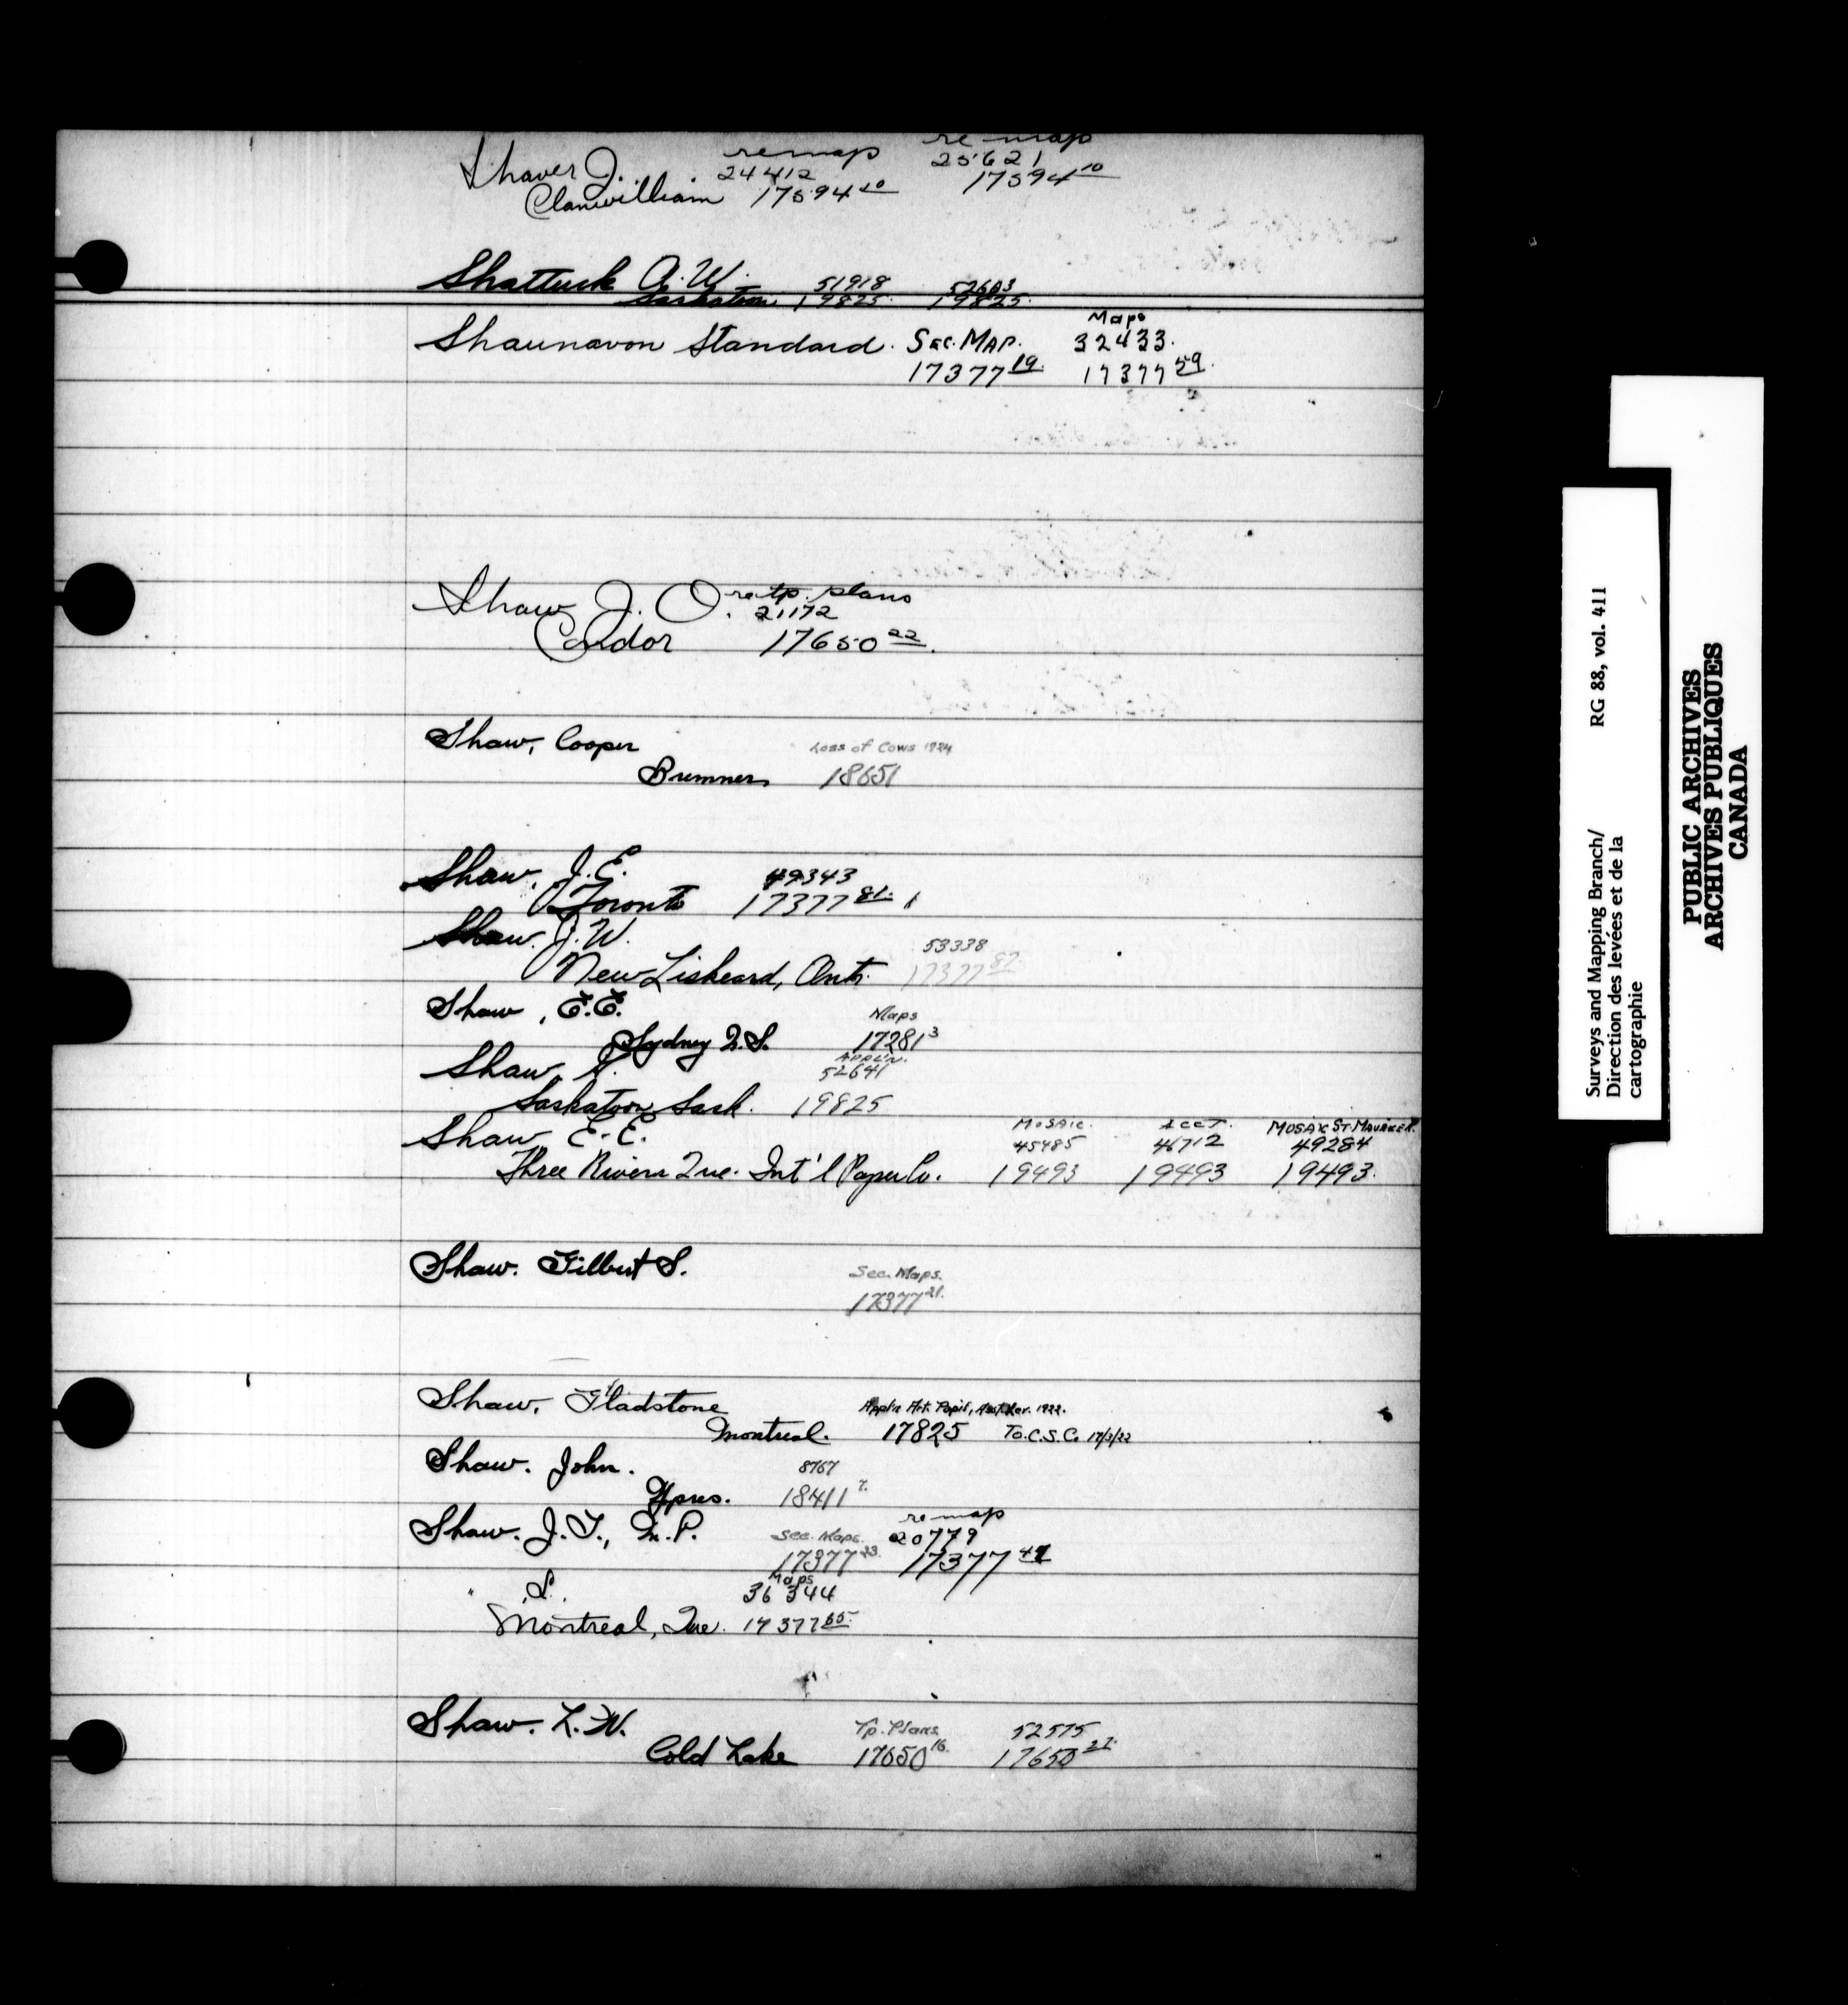 re map re map
Shaver J. 24412 25621
Clanwilliam 17594 20 17594 10
Shattuck A. W. 51918 52603
Saskatoon 19825. 19825.
Maps
Shaunavon Standard. Sec. Map. 32433.
17377 19. 17377 59.
re tp. plans
Shaw J. O. 21172
Condor 17650 22.
Shaw, Cooper Loss of Cows 1924
Bremner 18651
Shaw, J. E. 49343
Toronto 17377 81.
Shaw. J. W. 53338
New Liskeard, Ont. 17377 87.
Shaw, E.E. Maps
Sydney N.S. 17281 3
Appl'n.
Shaw, 52641
Saskatoon Sask. 19825
Mosaic. Acct. Mosaic St. Maurice R.
Shaw E. E. 45485 46712 49284
Three Rivers Que. Int'l Paper Co. 19493 19493 19493.
Shaw. Gilbert S. Sec. Maps.
17377 21.
Shaw, Gladstone Appln Art. Pupil, Asst. 1922.
Montreal. 17825 To C.S.C. 17/3/22
Shaw. John. 8767
Ypres. 18411 7.
re map
Shaw. J.T., M.P. Sec. Maps. 20779
17377 23. 17377 47
Maps
" , S. 36344
Montreal, Que. 17377 65.
Shaw. L. W. Tp. Plans 52575
Cold Lake 17650 16. 17650 27.
Surveys and Mapping Branch/ RG 88, vol. 411
Direction des levées et de la
cartographie
PUBLIC ARCHIVES
ARCHIVES PUBLIQUES
CANADA